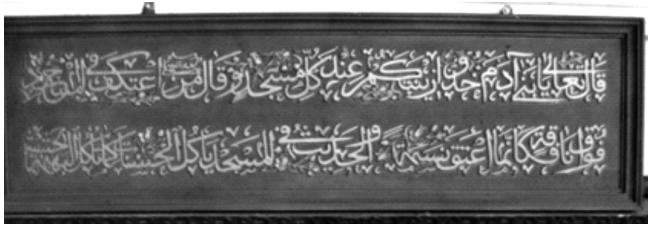 قال تعالى يا بني آدم خذوا زينتكم عند كل مسجد وقال من اعتكف
فواق ناقة فكأنما اعتق نسمة الحديث في المسجد يأكل الحسنات كما تأكل البهيمة الحشيش